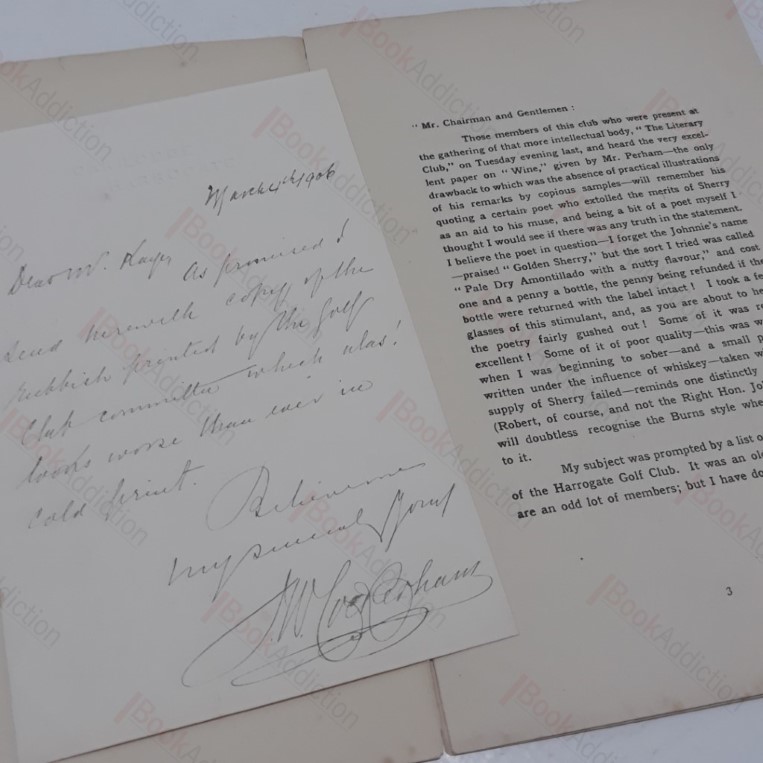 March 1906
Dear Mr. Kaye As promised I
send herewith copy of the
rubbish printed by the Golf
Club committee which alas!
looks worse than ever in
cold print.
Believe me
very sincerely yours
J.W.
" Mr. Chairman and Gentlemen :
Those members of this club who were present at
the gathering of that more intellectual body, " The Literary
Club," on Tuesday evening last, and heard the very excel-
lent paper on " Wine," given by Mr. Perham—the only
drawback to which was the absence of practical illustrations
of his remarks by copious samples—will remember his
quoting a certain poet who extolled the merits of Sherry
as an aid to his muse, and being a bit of a poet myself I
thought I would see if there was any truth in the statement.
I believe the poet in question—I forget the Johnnie's name
—praised " Golden Sherry," but the sort I tried was called
" Pale Dry Amontillado with a nutty flavour," and cost
one and a penny a bottle, the penny being refunded if the
bottle were returned with the label intact ! I took a fe
glasses of this stimulant, and, as you are about to he
the poetry fairly gushed out ! Some of it was re
excellent ! Some of it of poor quality—this was w
when I was beginning to sober—and a small p
written under the influence of whiskey—taken w
supply of Sherry failed—reminds one distinctly
(Robert, of course, and not the Right Hon. Jo
will doubtless recognise the Burns style whe
to it.
My subject was prompted by a list o
of the Harrogate Golf Club. It was an ol
are an odd lot of members; but I have do
3
BookAddiction